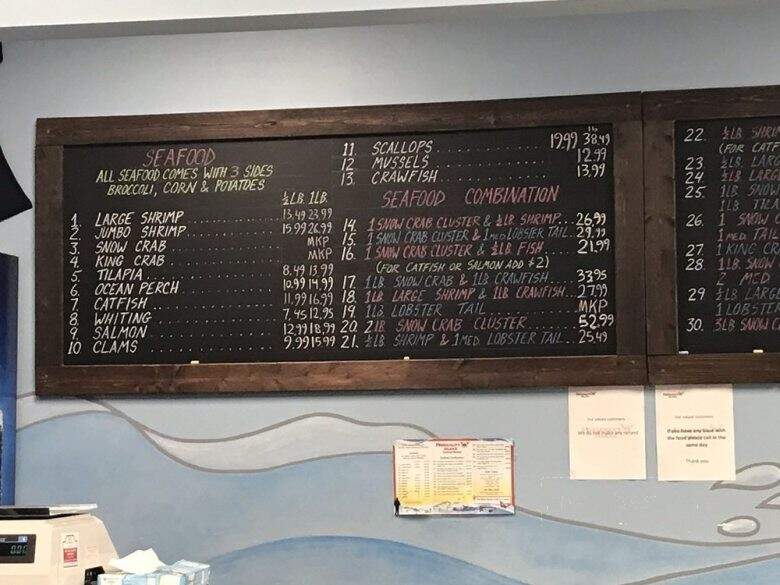 SEAFOOD
ALL SEAFOOD COMES WITH 3 SIDES
BROCCOLI, CORN & POTATOES
½LB. 1LB.
1. LARGE SHRIMP 13.49 23.99
2. JUMBO SHRIMP 15.99 26.99
3. SNOW CRAB MKP
4. KING CRAB MKP
5. TILAPIA 8.49 13.99
6. OCEAN PERCH 10.99 14.99
7. CATFISH 11.99 16.99
8. WHITING 7.45 12.95
9. SALMON 12.99 18.99
10 CLAMS 9.99 15.99
11. SCALLOPS 19.99 38.49
12. MUSSELS 12.99
13. CRAWFISH 13.99
SEAFOOD COMBINATION
14. 1 SNOW CRAB CLUSTER & ½LB SHRIMP... 26.99
15. 1 SNOW CRAB CLUSTER & 1 MED LOBSTER TAIL.. 29.99
16. 1 SNOW CRAB CLUSTER & ½LB FISH 21.99
(FOR CATFISH OR SALMON ADD $2)
17. 1LB SNOW CRAB & 1LB CRAWFISH 33.95
18. 1LB LARGE SHRIMP & 1LB CRAWFISH 27.99
19. 1LB LOBSTER TAIL MKP
20. 2LB SNOW CRAB CLUSTER 52.99
21. ½LB SHRIMP & 1MED. LOBSTER TAIL... 25.49
22. ½LB SHR
(FOR CATF
23 ½LB LAR
24 ½LB LARG
25. 1LB SNO
1LB TIL
26. 1 SNOW
1 MED TAIL
27. 1 KING CR
28. 1LB. SNOW
2 MED
29 ½LB LARG
1 LOBST
30. 3LB SNOW
We do not make any refund
If you have any issue with
the food please call in the
same day
Thank you